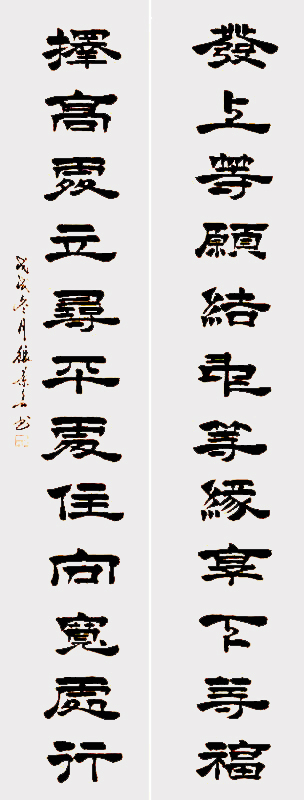 發上等願結中等緣享下等福
擇高處立尋平處住向寬處行
戊戌冬月